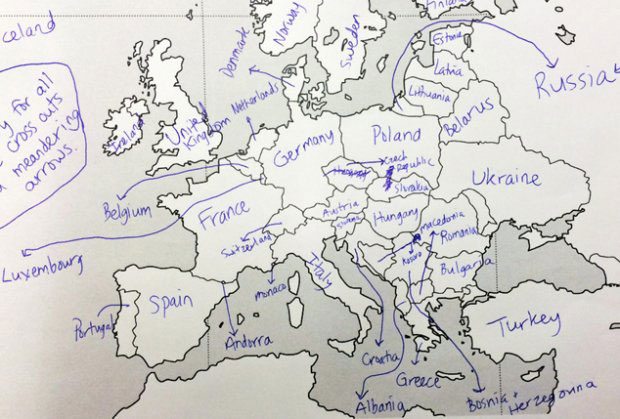 celand
y for all
cross outs
meandering
arrows.
Norway
Sweden
Finland
Denmark
Estonia
Latvia
Lithuania
Russia
Belarus
Netherlands
Ireland
United
Kingdom
Germany
Poland
Czech
Republic
Slovakia
Ukraine
Belgium
France
Luxembourg
Switzerland
Austria
Hungary
Macedonia
Romania
Kosovo
Bulgaria
Italy
Monaco
Portugal
Spain
Andorra
Croatia
Albania
Greece
Bosnia +
Herzegovina
Turkey